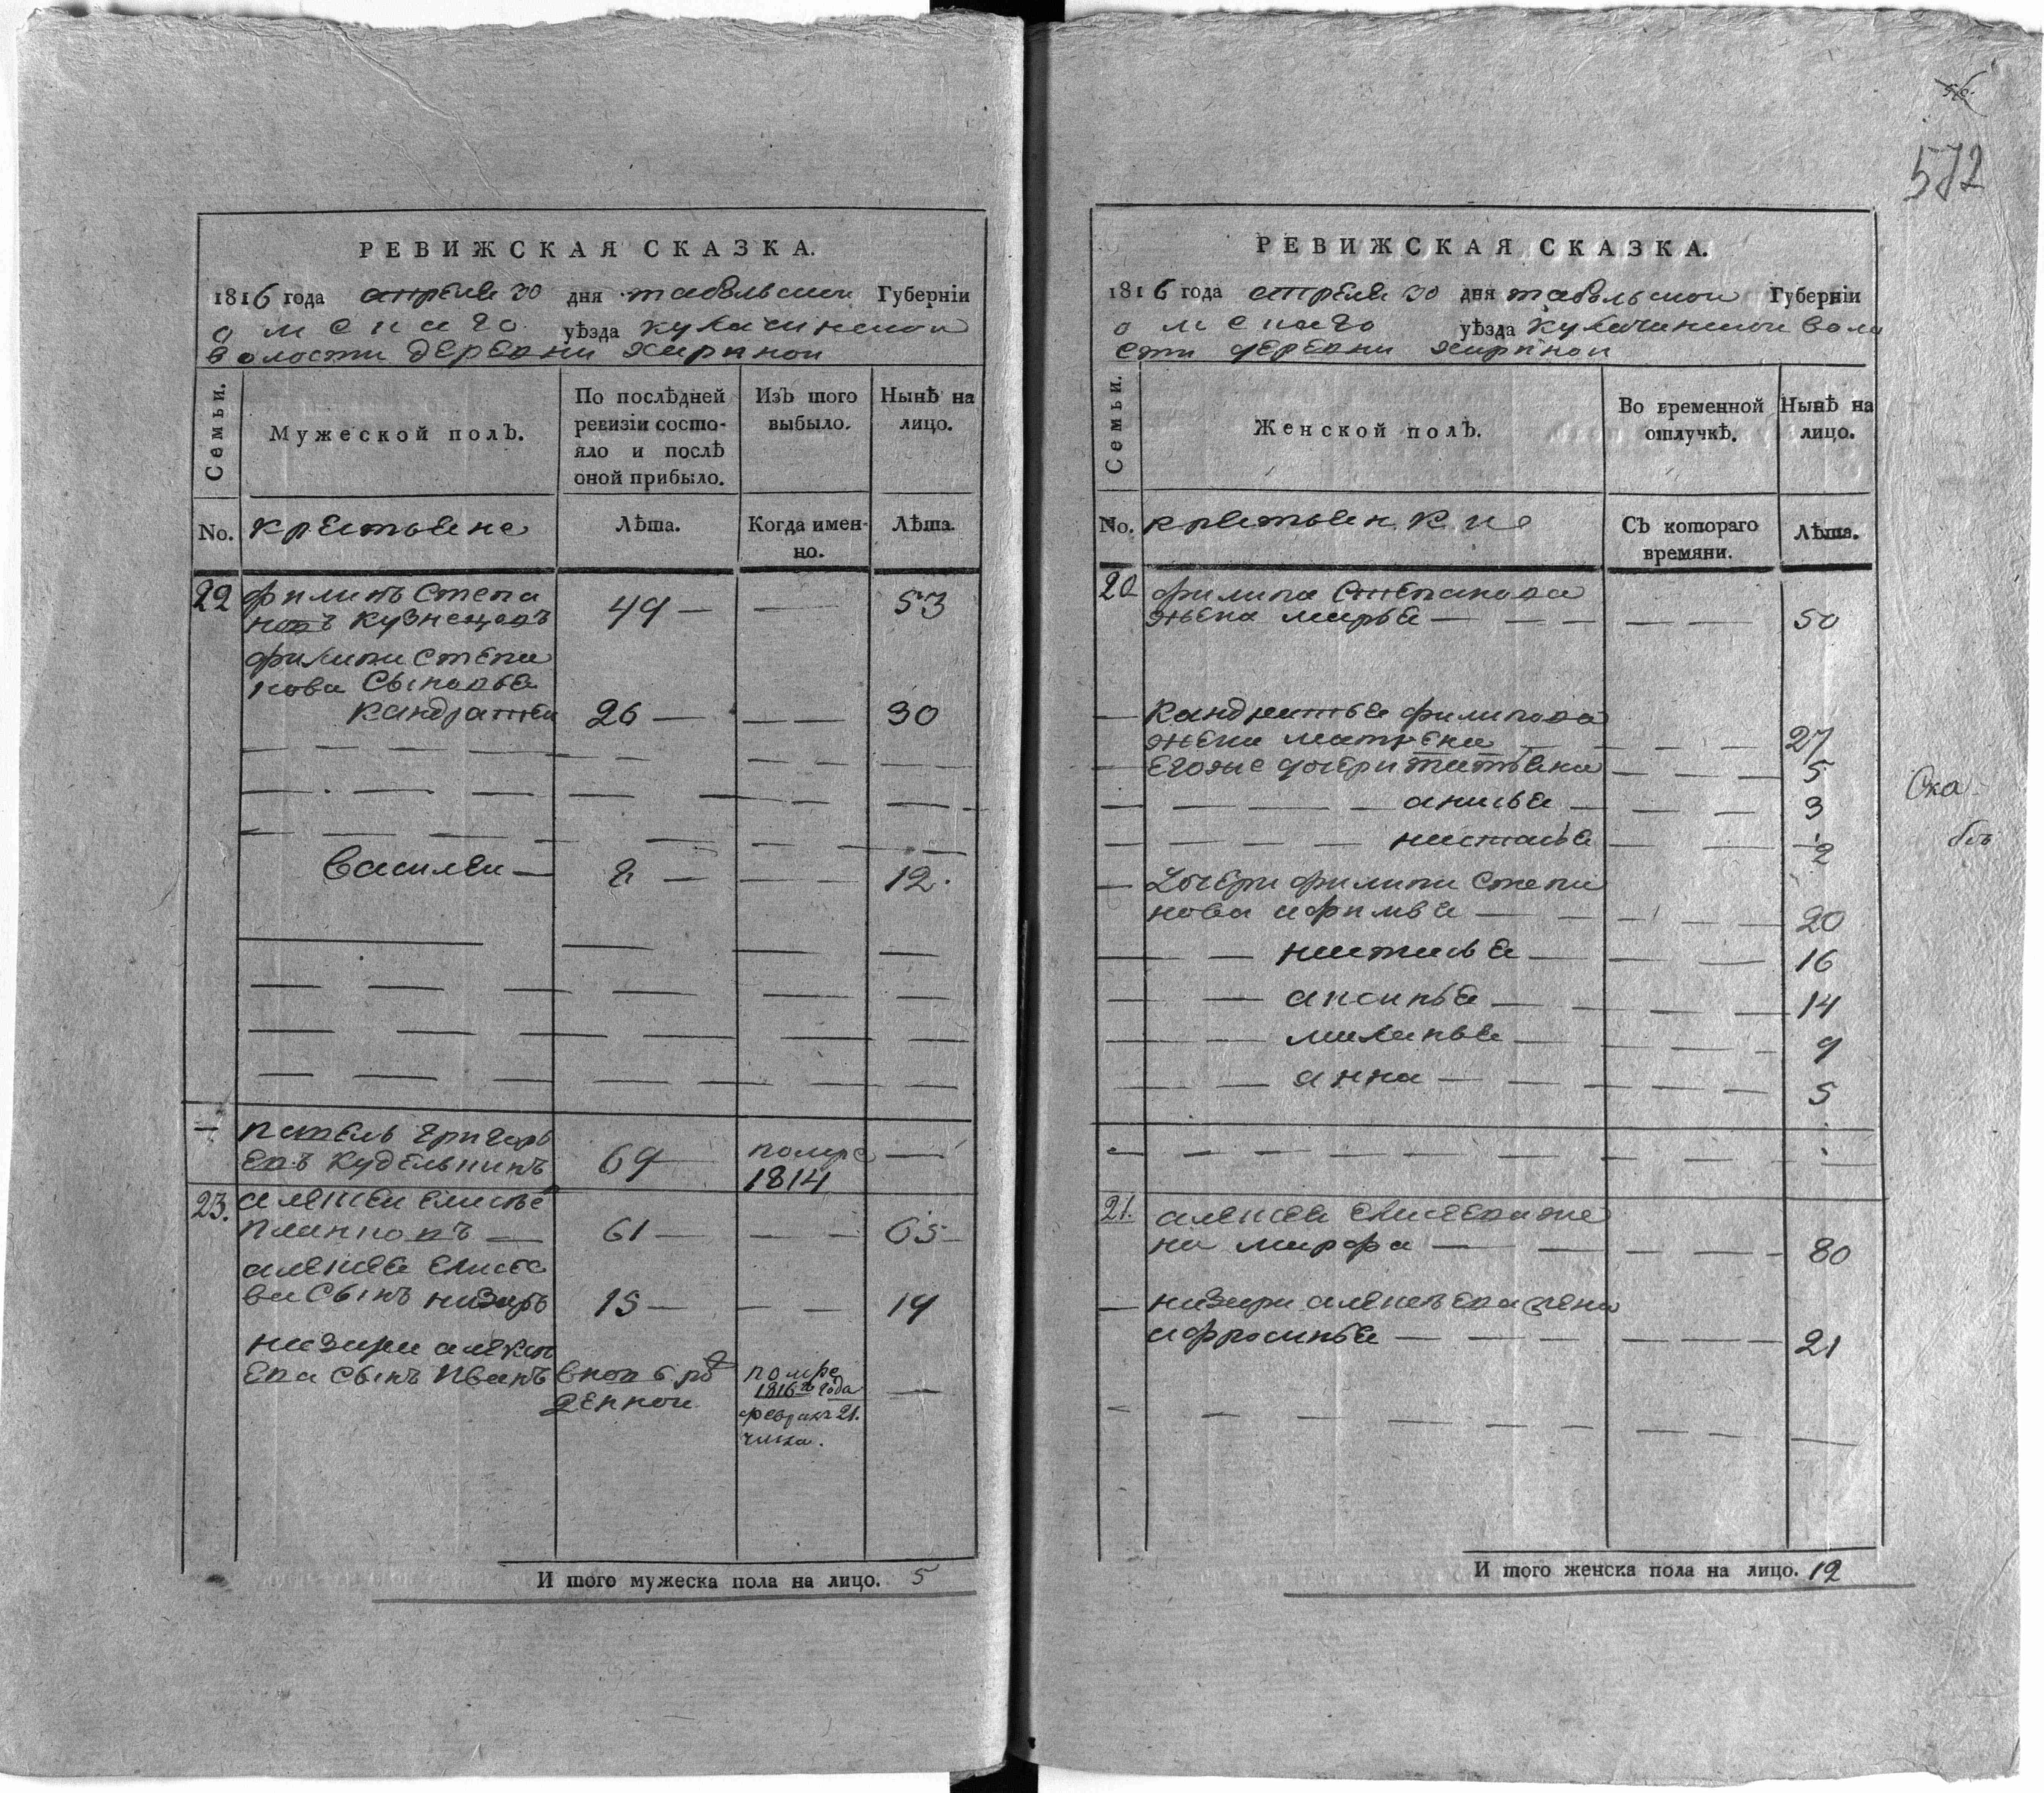 572
РЕВИЖСКАЯ СКАЗКА.
1816 года апреля 30 дня табольскои Губерніи
омскаго уѣзда кулачинскои
волости деревни хиринои
Семьи.
Мужеской полЪ.
По послѣдней ревизіи состояло и послѣ оной прибыло.
ИзЪ того выбыло.
Нынѣ на лицо.
No. крестьяне
Лѣта.
Когда именно.
Лѣта.
22 филипъ Степа
новъ кузнецовъ 49 — — 53
филипа степа
нова сыновья
кандратеи 26 — — — 30
василеи — 8 — — 12.
— павелъ григорь
евъ кудельникъ 69 — помре 1814 —
23. алексеи елисѣе
61 — — — 65 —
алексея елисѣе
ва сынъ назаръ 15 — — — 19
назара алексѣ
ева сынъ иванъ вновь рож
денной
помре 1816го года февраля 21. числа. —
И того мужеска пола на лицо. 5
РЕВИЖСКАЯ СКАЗКА.
1816 года апреля 30 дня табольскои Губерніи
омскаго уѣзда кулачинскои воло
сти деревни хиринои
Семьи.
Женской полЪ.
Во временной отлучкѣ.
Нынѣ на лицо.
No. крестьянкие
СЪ котораго времяни.
Лѣта.
20 филипа Степанова
жена марья — — — — — 50
— кандратья филипова
жена матрена — — — 27
— егоже дочери татьяна — — — 5
— — — — анисья — — — 3
— — — — настасья — — 2
— дочери филипа степа
нова афимья — — — — 20
— — настасья — — — 16
— — аксинья — — — 14
— — маланья — — — 9
— — анна — — — — 5
21. алексея елисеева же
на марфа — — — — 80
— назара алексѣева жена
афросинья — — — — — 21
И того женска пола на лицо. 12
Ска